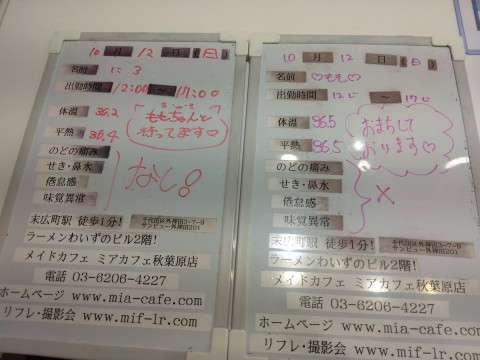 10 月 12 日 (月)
名前 に3
出勤時間 12:00 〜 17:00
体温 36.2
平熱 36.4
ももちゃんと
待ってます♡
のどの痛み
せき・鼻水
倦怠感
味覚異常
なし!
末広町駅 徒歩1分! 千代田区外神田3-7-9
サンビュー外神田201
ラーメンわいずのビル2階!
メイドカフェ ミアカフェ秋葉原店
電話 03-6206-4227
ホームページ www.mia-cafe.com
リフレ・撮影会 www.mif-lr.com
10 月 12 日 (日)
名前 ♡もも♡
出勤時間 12じ 〜 17じ
体温 36.5
平熱 36.5
おまちして
おります♡
のどの痛み
せき・鼻水
倦怠感
味覚異常
×
末広町駅 徒歩1分! 千代田区外神田3-7-9
サンビュー外神田201
ラーメンわいずのビル2階!
メイドカフェ ミアカフェ秋葉原店
電話 03-6206-4227
ホームページ www.mia-cafe.com
リフレ・撮影会 www.mif-lr.com